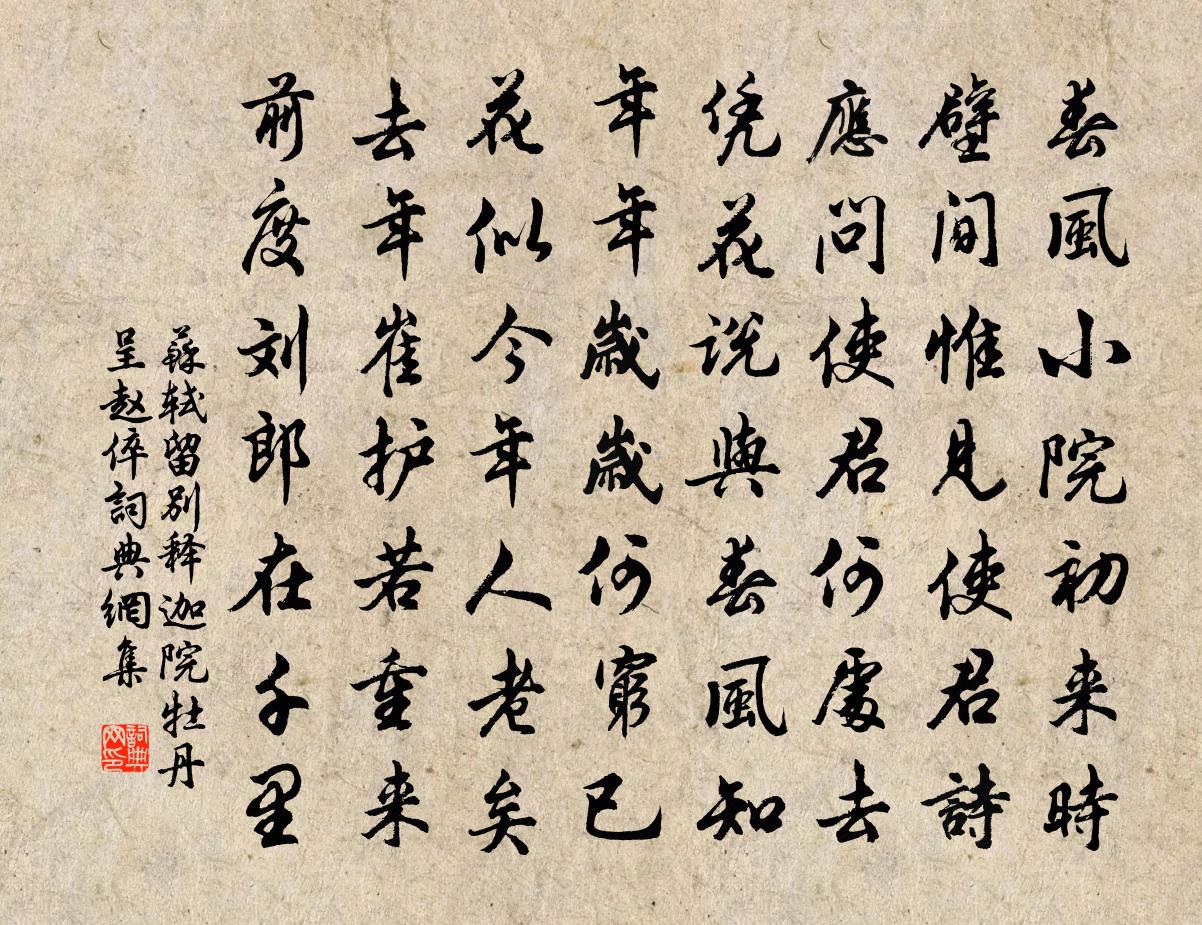 春風小院初来時
壁间惟見使君詩
應问使君何處去
凭花说與春風知
年年歲歲何窮已
花似今年人老矣
去年崔护若重来
前度刘郎在千里
蘇轼留别释迦院牡丹
呈赵倅詞典網集
詞典
网印